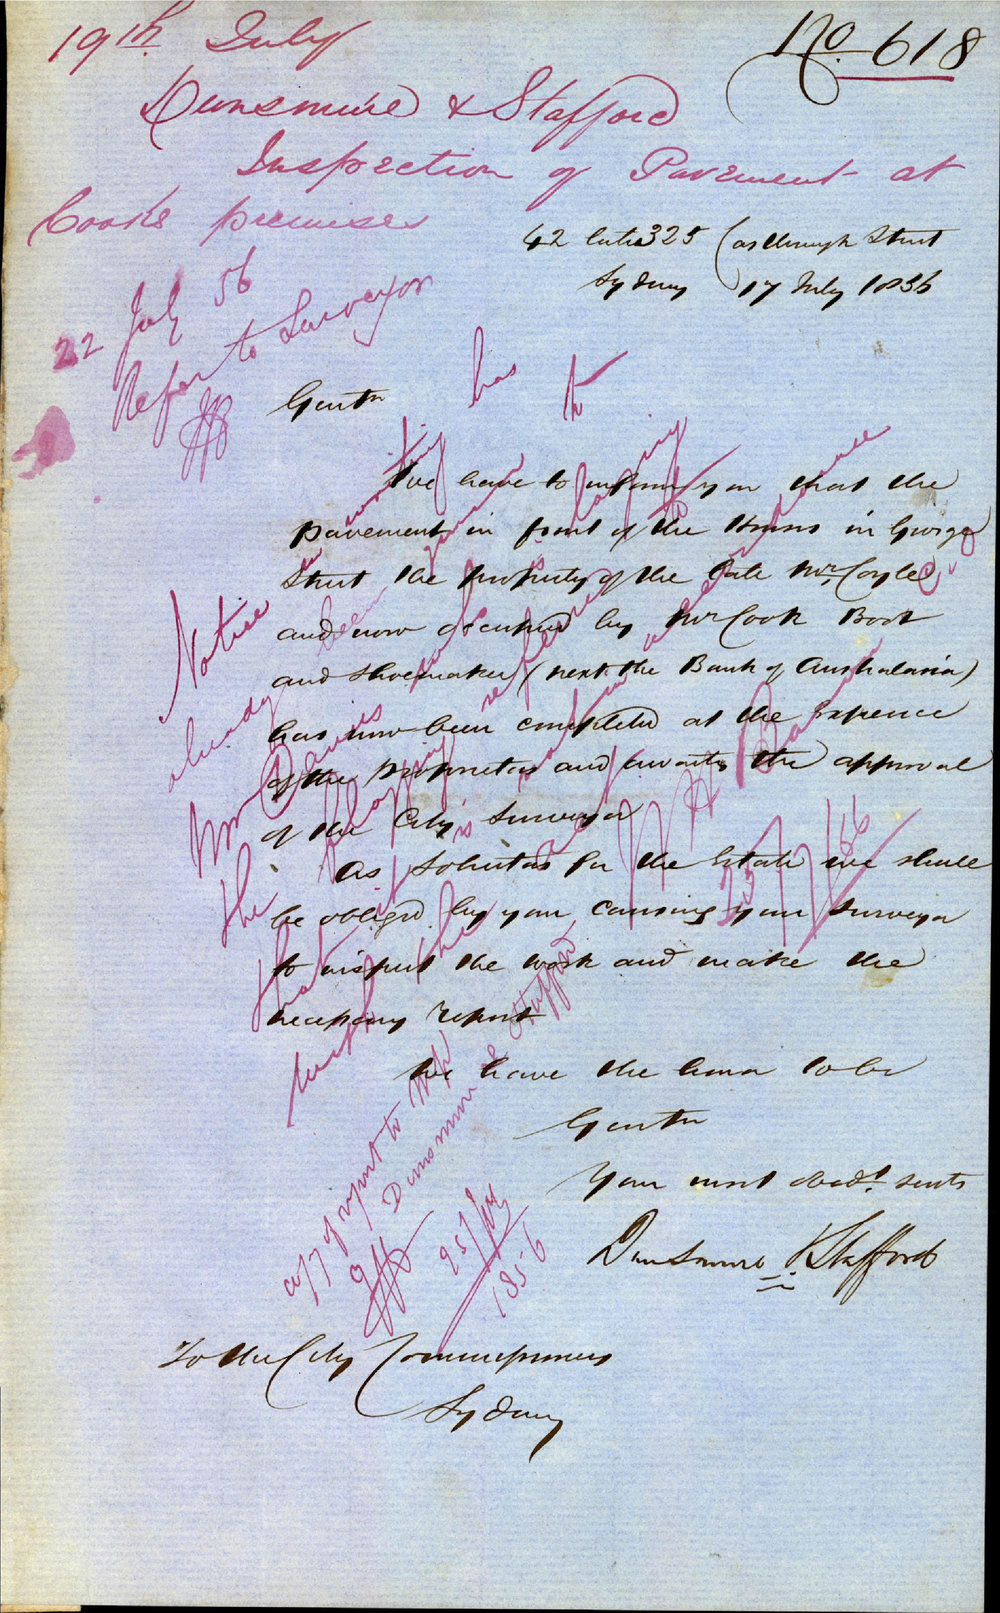 No. 618
19th July
Dunsmure & Stafford
Inspection of Pavement at
Cooks premises
42 late 325 Castlereagh Street
Sydney 17 July 1856
22 July 56
Refer to Surveyor
Gentn
We have to inform you that the
pavement in front of the House in George
Street the property of the late Mr. Coyle
and now occupied by Mr Cook Boot
and Shoemaker (next the Bank of Australasia)
has now been completed at the Expence
of the proprietors and awaits the approval
of the City Surveyor
As Solicitors for the Estate we shall
be obliged by your causing your Surveyor
to inspect the work and make the
necessary report
We have the honor to be
Gentn
Your most obedt. servts
Dunsmure & Stafford
To the City Commissioners
Sydney
Notice in writing has
already been given to
Mr Davies
the flagging referred
that it is
with the
23/7/56
of report to
Dunsmure & Stafford
25 July
1856